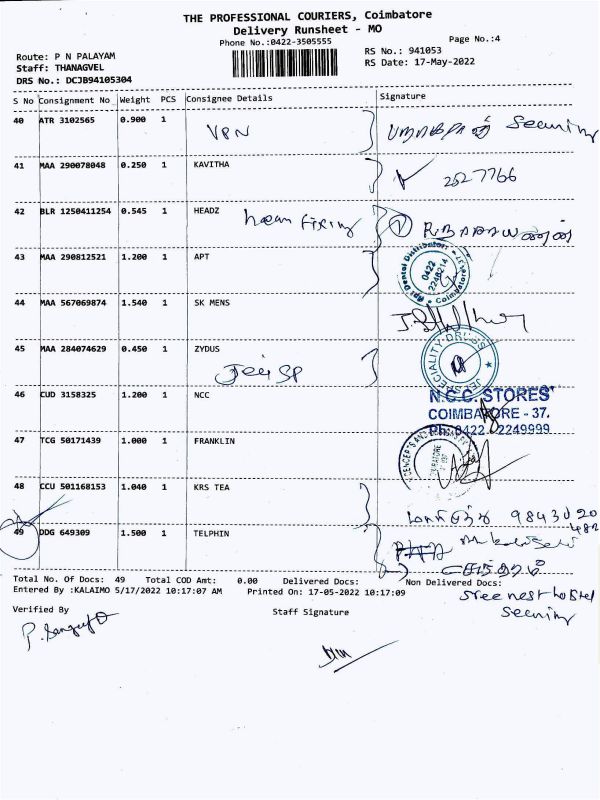 THE PROFESSIONAL COURIERS, Coimbatore
Delivery Runsheet - MO
Phone No.:0422-3505555
Page No.:4
Route: P N PALAYAM
RS No.: 941053
Staff: THANAGVEL
RS Date: 17-May-2022
DRS No.: DCJB94105304
S No Consignment No Weight PCS Consignee Details Signature
40 ATR 3102565 0.900 1 VPN Security
41 MAA 290078048 0.250 1 KAVITHA 2527766
42 BLR 1250411254 0.545 1 HEADZ
43 MAA 290812521 1.200 1 APT
Apt Dental Distributor Coimbatore
0422
2248214
44 MAA 567069874 1.540 1 SK MENS
45 MAA 284074629 0.450 1 ZYDUS
SPECIALITY DRUGS
46 CUD 3158325 1.200 1 NCC
N.C.C. STORES
COIMBATORE - 37.
Ph: 0422 - 2249999
47 TCG 50171439 1.000 1 FRANKLIN
48 CCU 501168153 1.040 1 KRS TEA
49 DDG 649309 1.500 1 TELPHIN
Total No. Of Docs: 49 Total COD Amt: 0.00 Delivered Docs: Non Delivered Docs:
Entered By :KALAIMO 5/17/2022 10:17:07 AM Printed On: 17-05-2022 10:17:09
Verified By
Staff Signature